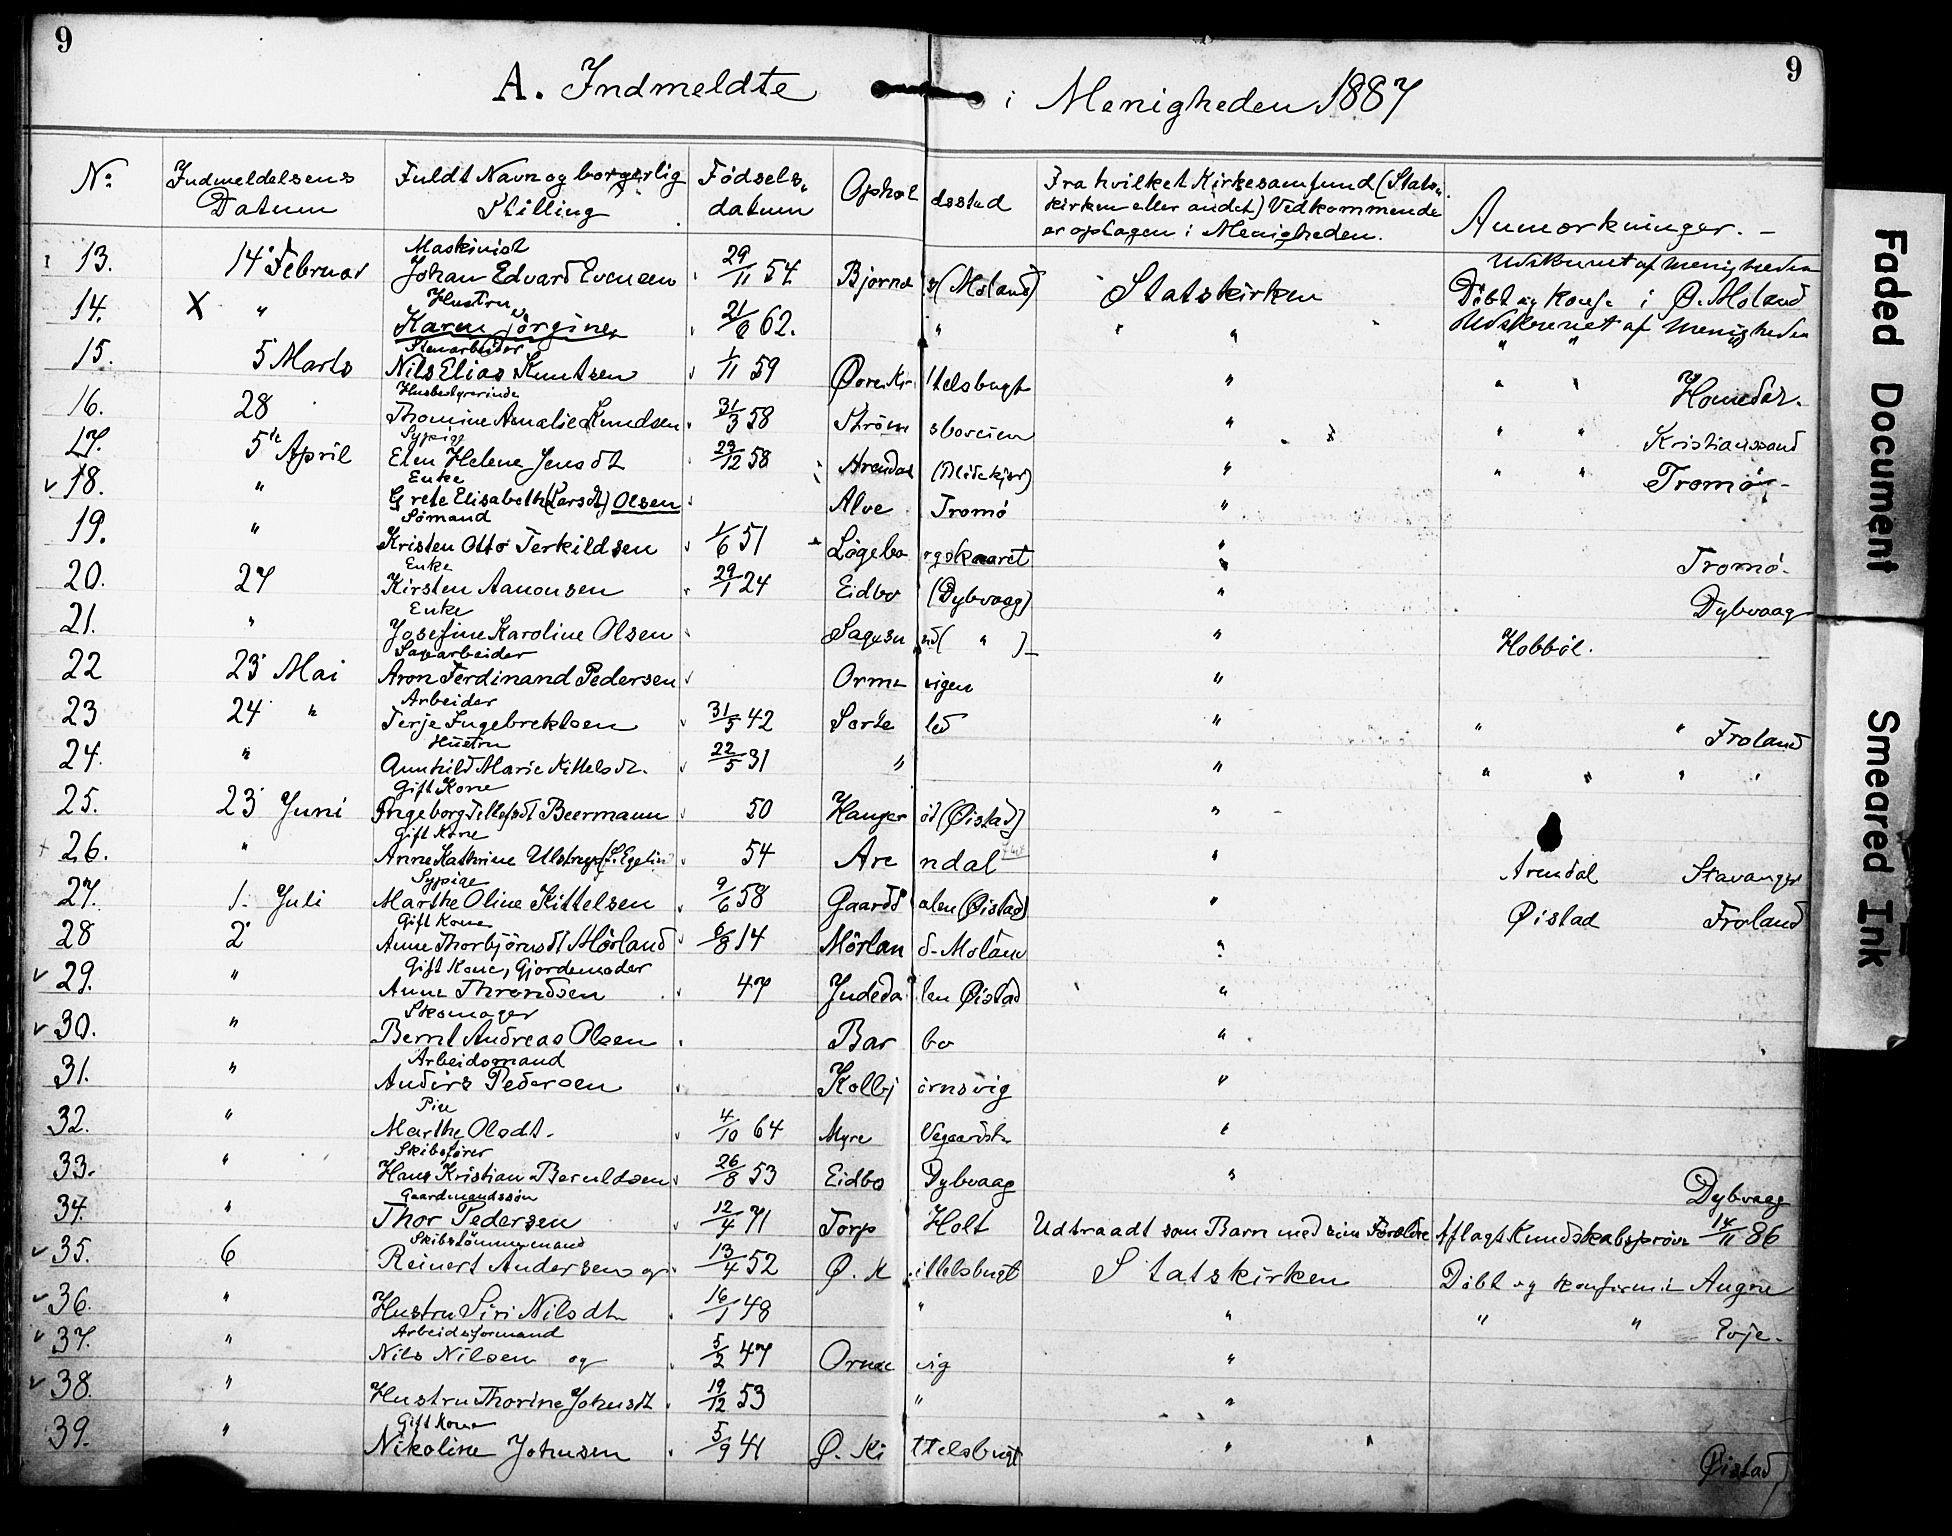 9
9
A. Indmeldte i Menigheden 1887
No. Indmeldelsens Datum Fuldt Navn og borgerlig Stilling Fødselsdatum Opholdsstad Fra hvilket Kirkesamfund (Statskirken eller andet) Vedkommende er optagen i Menigheden. Anmærkninger. -
Maskinist Udskrevet af menigheden
13. 14 Februar Johan Edvard Evensen 29/11 54 Bjornes (Moland) Statskirken Döbt og Konf i Ø. Moland
Hustru Udskrevet af menigheden
14. X " Karen Jörgine 21/6 62. " " " "
Stenarbeider
15. 5 Marts Nils Elias Knutsen 1/11 59 Øvre Kittelsbugt " " " Homedal.
Husbestyrerinde
16. 28 Thomine Amalie Knudsen 31/3 58 Strömsboveien " " " Kristianssand
Sypige
17. 5te April Elen Helene Jensdt 23/12 58 Arendal (Blödekjær) " " " Tromö -
Enke
18. " Grete Elisabeth (Larsdt) Olsen Alve Tromö "
Sömand
19. " Kristen Otto Terkildsen 1/6 51 Lögeborgskaaret " Tromö.
Enke
20. 27 Kirsten Aanonsen 29/1 24 Eidbo (Dybvaag) " Dybvaag
Enke
21. " Josefine Karoline Olsen Sagesund ( " ) - " Hobböl.
Sagarbeider
22 23 Mai Aron Ferdinand Pedersen Ormevigen "
Arbeider
23 24 " Terje Ingebrektsen 31/5 42 Sørsled " " " Froland
Hustru
24. " Gunhild Marie Kittelsdt. 22/5 31 " " " " " '
Gift Kone
25. 23 Juni Ingeborg Tellefsdt Beermann 50 Hangeröd (Øistad) "
Gift Kone
26. " Anne Kathrine Ulstrup (f. Egelin) 54 Arendal " Arendal Stavanger
Sypige
27. 1. Juli Marthe Oline Kittelsen 9/6 58 Gaarddalen (Øistad) " Øistad Froland
Gift Kone
28 2 Anne Thorbjörnsdt Mörland 6/8 14 Mörland - Moland "
Gift Kone, Gjordemoder
29. " Anne Throndsen 47 Jndedalen Øistad "
Skomager
30. " Bernt Andreas Olsen Barbo "
Arbeidsmand
31. " Anders Pedersen Kolbjörnsvig "
Pige
32. " Marthe Olsdt. 4/10 64 Myre Vegaardsh. "
Skibsfører
33. " Hans Kristian Berntdsen 26/8 53 Eidbo Dybvaag " Dybvaag
Gaardmandssön
34. " Thor Pedersen 12/4 71 Torp Holt Udtraadt som Barn med sine Forældre Aflagt Kundskabsprøve 14/11 86
Skibstömmermand
35. 6 Reinert Andersen og 13/4 52 Ø. Kittelsbugt Statskirken Döbt og konfirm i Augne
36. " Hustru Siri Nilsdt 16/1 48 " " " " Evje.
Arbeidsformand
37. " Nils Nilsen og 5/2 47 Ormevig "
38. " Hustru Thorine Johnsdt 19/12 53 " "
Gift Kone
39. " Nikoline Johnsen 5/9 41 Ø. Kittelsbugt " Øistad
Faded Document
Smeared Ink